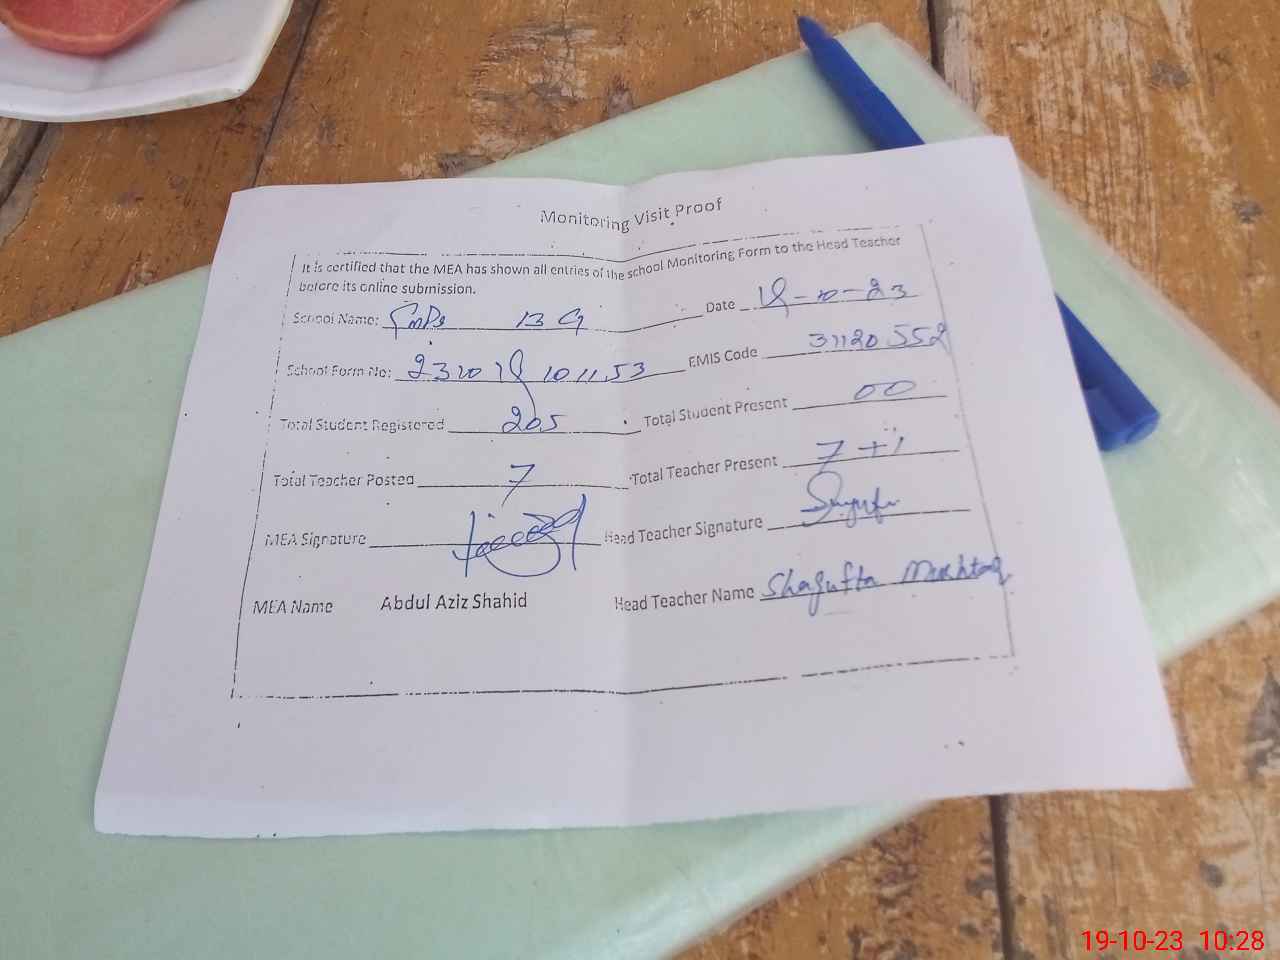 Monitoring Visit Proof
It is certified that the MEA has shown all entries of the school Monitoring Form to the Head Teacher
before its online submission.
School Name: GMPS 13 G Date 19-10-23
School Form No: 231019101153 EMIS Code 31120552
Total Student Registered 205 Total Student Present 00
Total Teacher Posted 7 Total Teacher Present 7+1
MEA Signature Head Teacher Signature
MEA Name Abdul Aziz Shahid Head Teacher Name Shagufta Mukhtaq
19-10-23 10:28